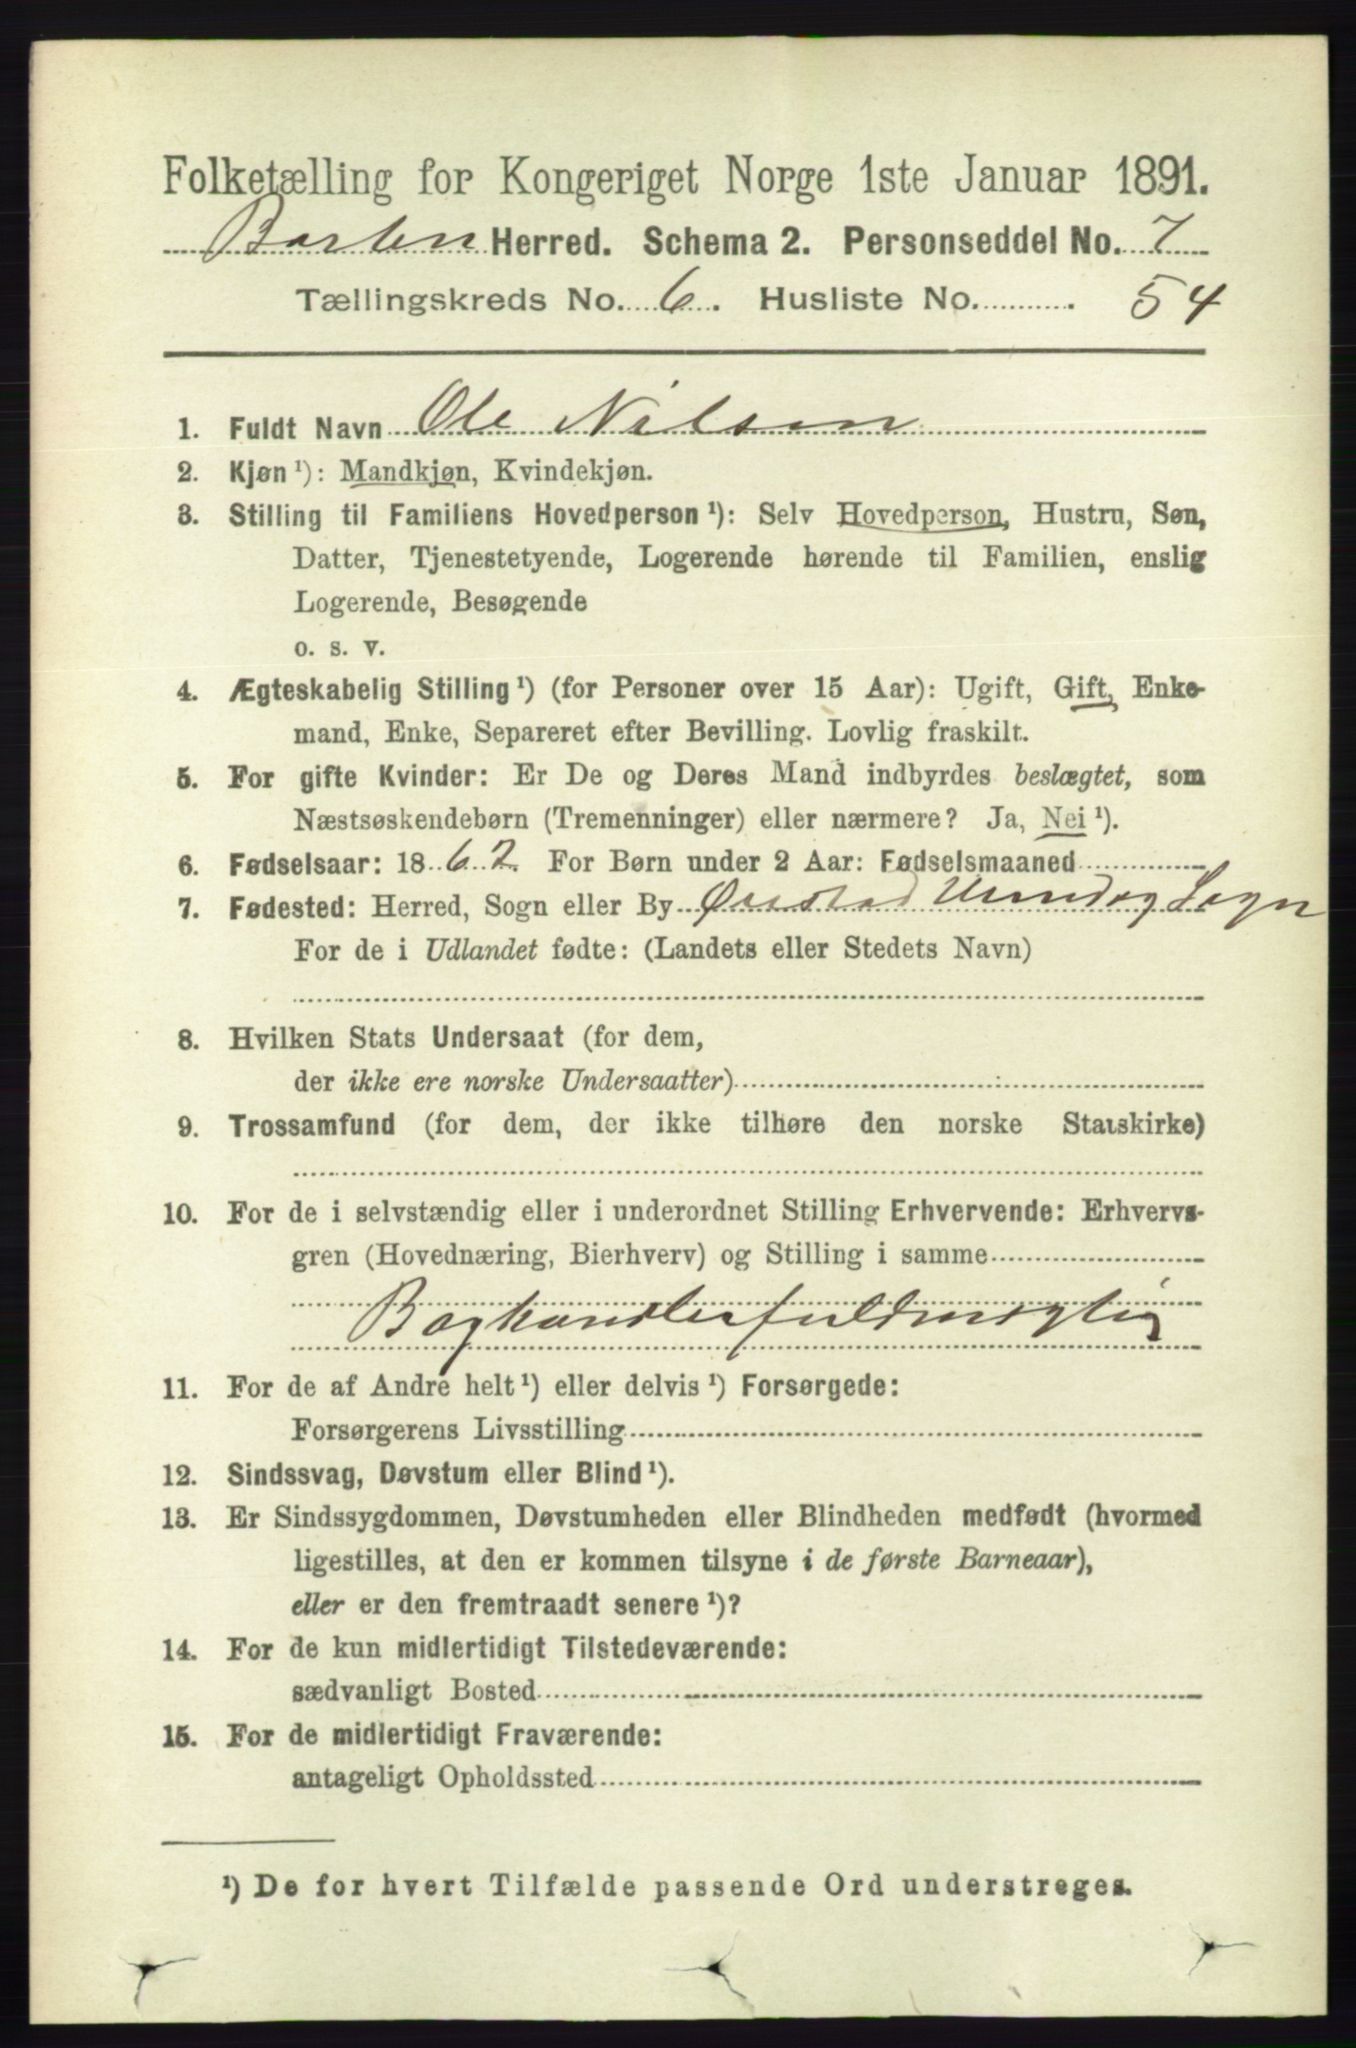 Folketælling for Kongeriget Norge 1ste Januar 1891.
Herred. Schema 2. Personseddel No. 7
Tællingskreds No. 6. Husliste No. . 54
1. Fuldt Navn Ole Nilsen
2. Kjøn ¹): Mandkjøn, Kvindekjøn.
3. Stilling til Familiens Hovedperson ¹): Selv Hovedperson, Hustru, Søn,
Datter, Tjenestetyende, Logerende hørende til Familien, enslig
Logerende, Besøgende
o. s. v.
4. Ægteskabelig Stilling ¹) (for Personer over 15 Aar): Ugift, Gift, Enke-
mand, Enke, Separeret efter Bevilling. Lovlig fraskilt.
5. For gifte Kvinder: Er De og Deres Mand indbyrdes beslægtet, som
Næstsøskendebørn (Tremenninger) eller nærmere? Ja, Nei ¹).
6. Fødselsaar: 1862 For Børn under 2 Aar: Fødselsmaaned
7. Fødested: Herred, Sogn eller By Sogn
For de i Udlandet fødte: (Landets eller Stedets Navn)
8. Hvilken Stats Undersaat (for dem,
der ikke ere norske Undersaatter)
9. Trossamfund (for dem, der ikke tilhøre den norske Statskirke)
10. For de i selvstændig eller i underordnet Stilling Erhvervende: Erhvervs-
gren (Hovednæring, Bierhverv) og Stilling i samme
Boghandlerfuldmægtig
11. For de af Andre helt ¹) eller delvis ¹) Forsørgede:
Forsørgerens Livsstilling
12. Sindssvag, Døvstum eller Blind ¹).
13. Er Sindssygdommen, Døvstumheden eller Blindheden medfødt (hvormed
ligestilles, at den er kommen tilsyne i de første Barneaar),
eller er den fremtraadt senere ¹)?
14. For de kun midlertidigt Tilstedeværende:
sædvanligt Bosted
15. For de midlertidigt Fraværende:
antageligt Opholdssted
¹) De for hvert Tilfælde passende Ord understreges.